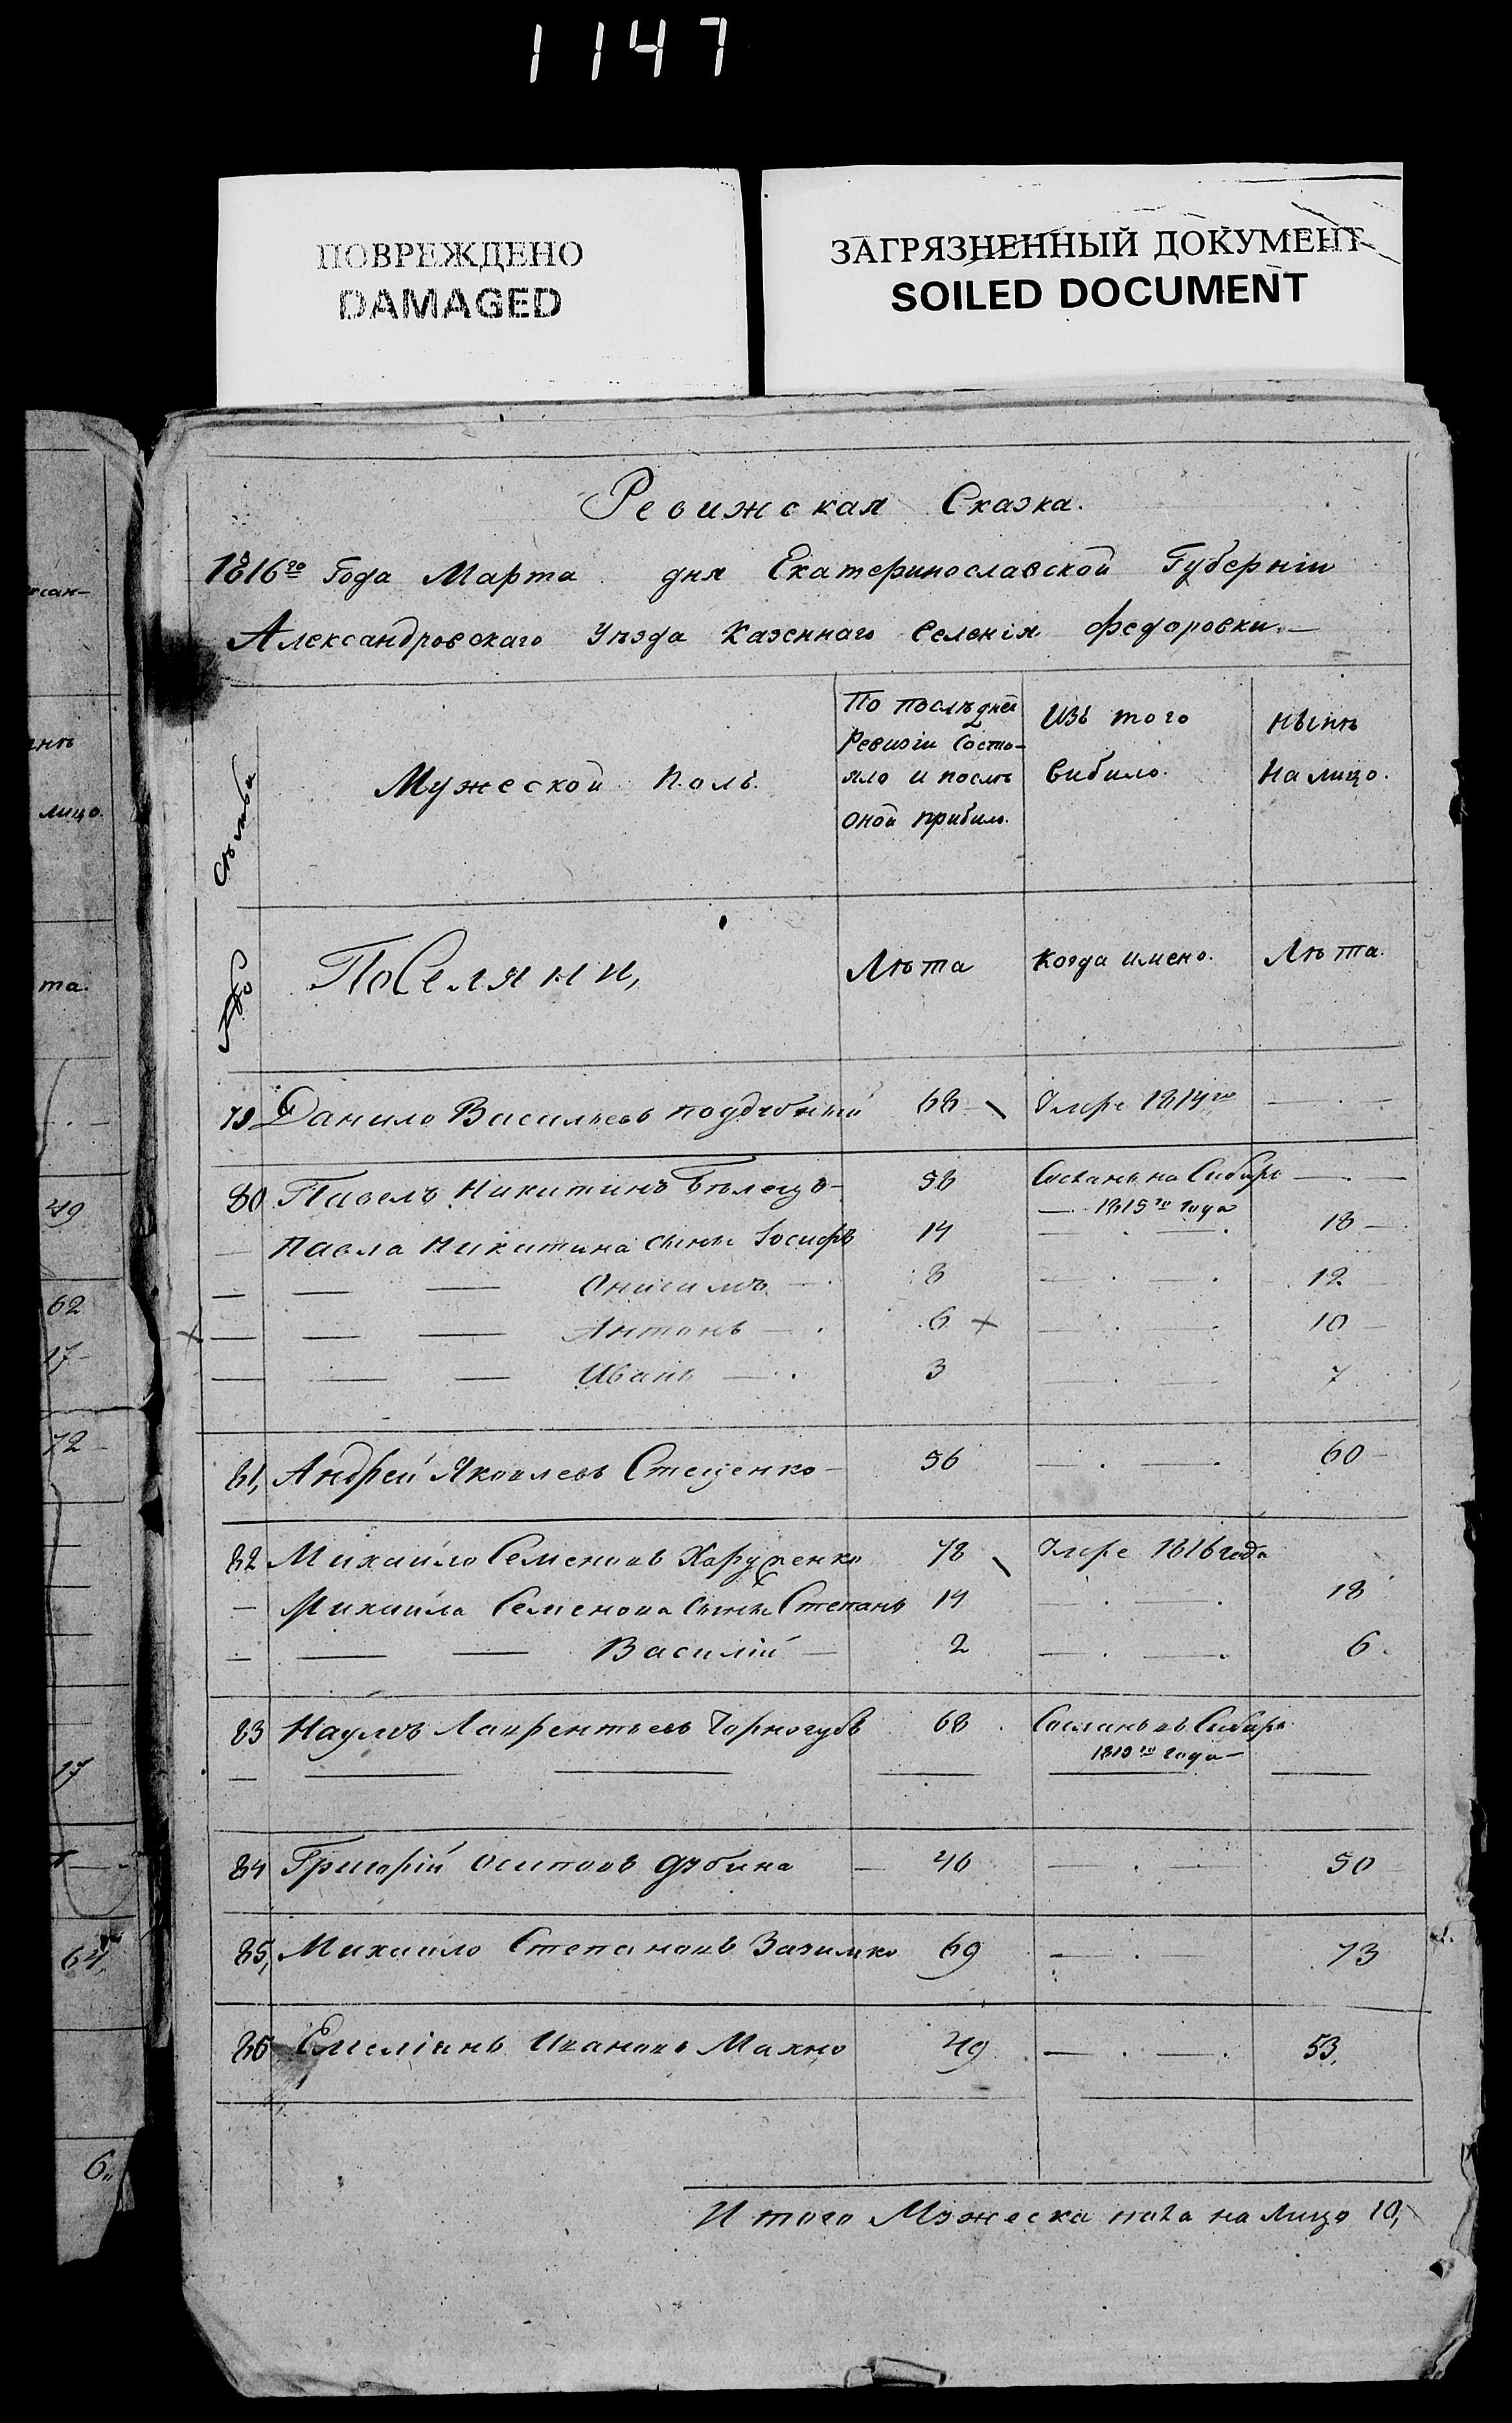 1147
ПОВРЕЖДЕНО
DAMAGED
ЗАГРЯЗНЕННЫЙ ДОКУМЕНТ
SOILED DOCUMENT
Ревижская Сказка.
1816го Года Марта дня Екатеринославской Губерніи
Александровскаго Уѣзда Казеннаго Селенія Федоровки.—
Мужеской Полъ.
По послѣдней
Ревизіи Состо-
яло и послѣ
оной прибыло.
Изъ того
выбило.
нынѣ
На лицо.
ПоСеляни,
Лѣта
Когда имено.
Лѣта.
79 Данило Васильевъ 68 Умре 1814го — . —
80 Павелъ Никитинъ Бѣлецъ— 58 на Сибирь — . —
— 1815го года
— Павла Никитина сынъ Іосифъ 14 — . — . 18 —
— — — Онисимъ — . 8 — . — . 12
× — — — Антонъ — . 6 × — . — . 10 —
— — — Иванъ — . 3 — . — . 7
81, Андрей Яковлевъ Стеценко— 56 — . — . 60 —
82 Михайло Семеновъ 78 Умре 1816 года
— Михайла Семенова Сынъ Степанъ 14 — . — . 18
— — — Василій — 2 — . — . 6.
83 Наумъ Лаврентьевъ Чорногубъ 68 . Сосланъ въ Сибирь
года—
84 Григорій Осиповъ Дубина — 46 — . — 50
85, Михайло Степановъ Зазимко 69 — . — 73
86 Емеліянъ Ивановъ Махно 49 — . — . 53,
И того Мужеска пола на Лицо 10,
сан-
лицо.
та.
49
62
17-
72-
17
64,
6,,